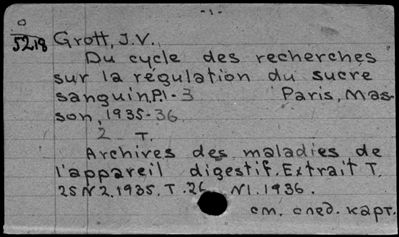 -1-
5218 Grott, J.V.
Du cycle des recherches
sur la régulation du sucre
sanguin.P.1-3 Paris, Mas-
son, 1935-36.
2 T.
Archives des maladies de
l'appareil digestif. Extrait T.
25 N2. 1935. T. 26 N1. 1936.
см. след. карт.